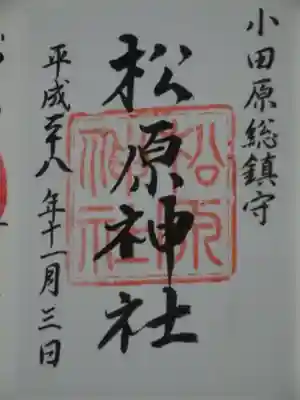 小田原総鎮守
松原神社
平成二十八年十一月三日
松原
神社